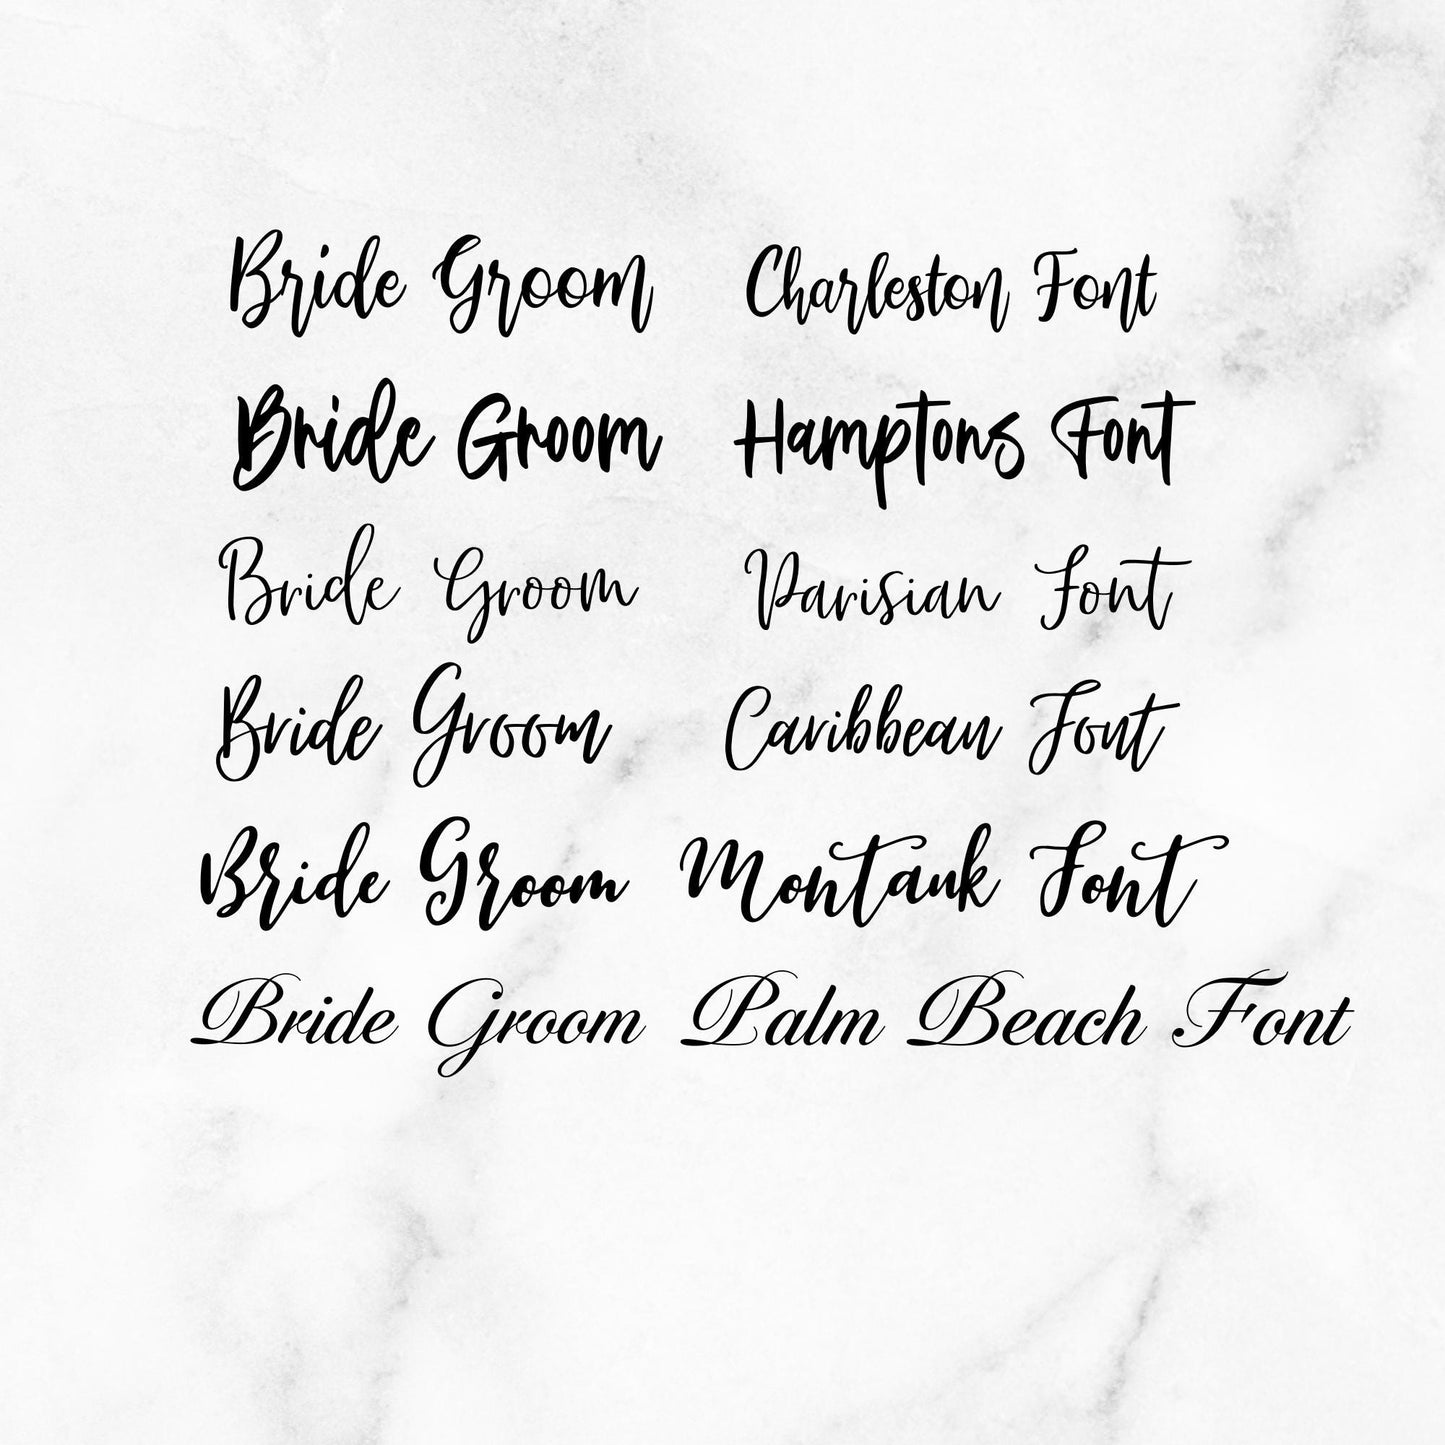 Bride Groom Charleston Font
Bride Groom Hamptons Font
Bride Groom Parisian Font
Bride Groom Caribbean Font
Bride Groom Montauk Font
Bride Groom Palm Beach Font